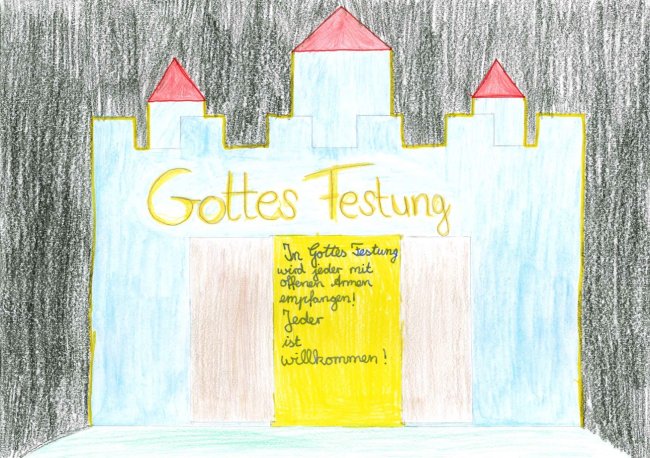 Gottes Festung
In Gottes Festung
wird jeder mit
offenen Armen
empfangen!
Jeder
ist
willkommen!